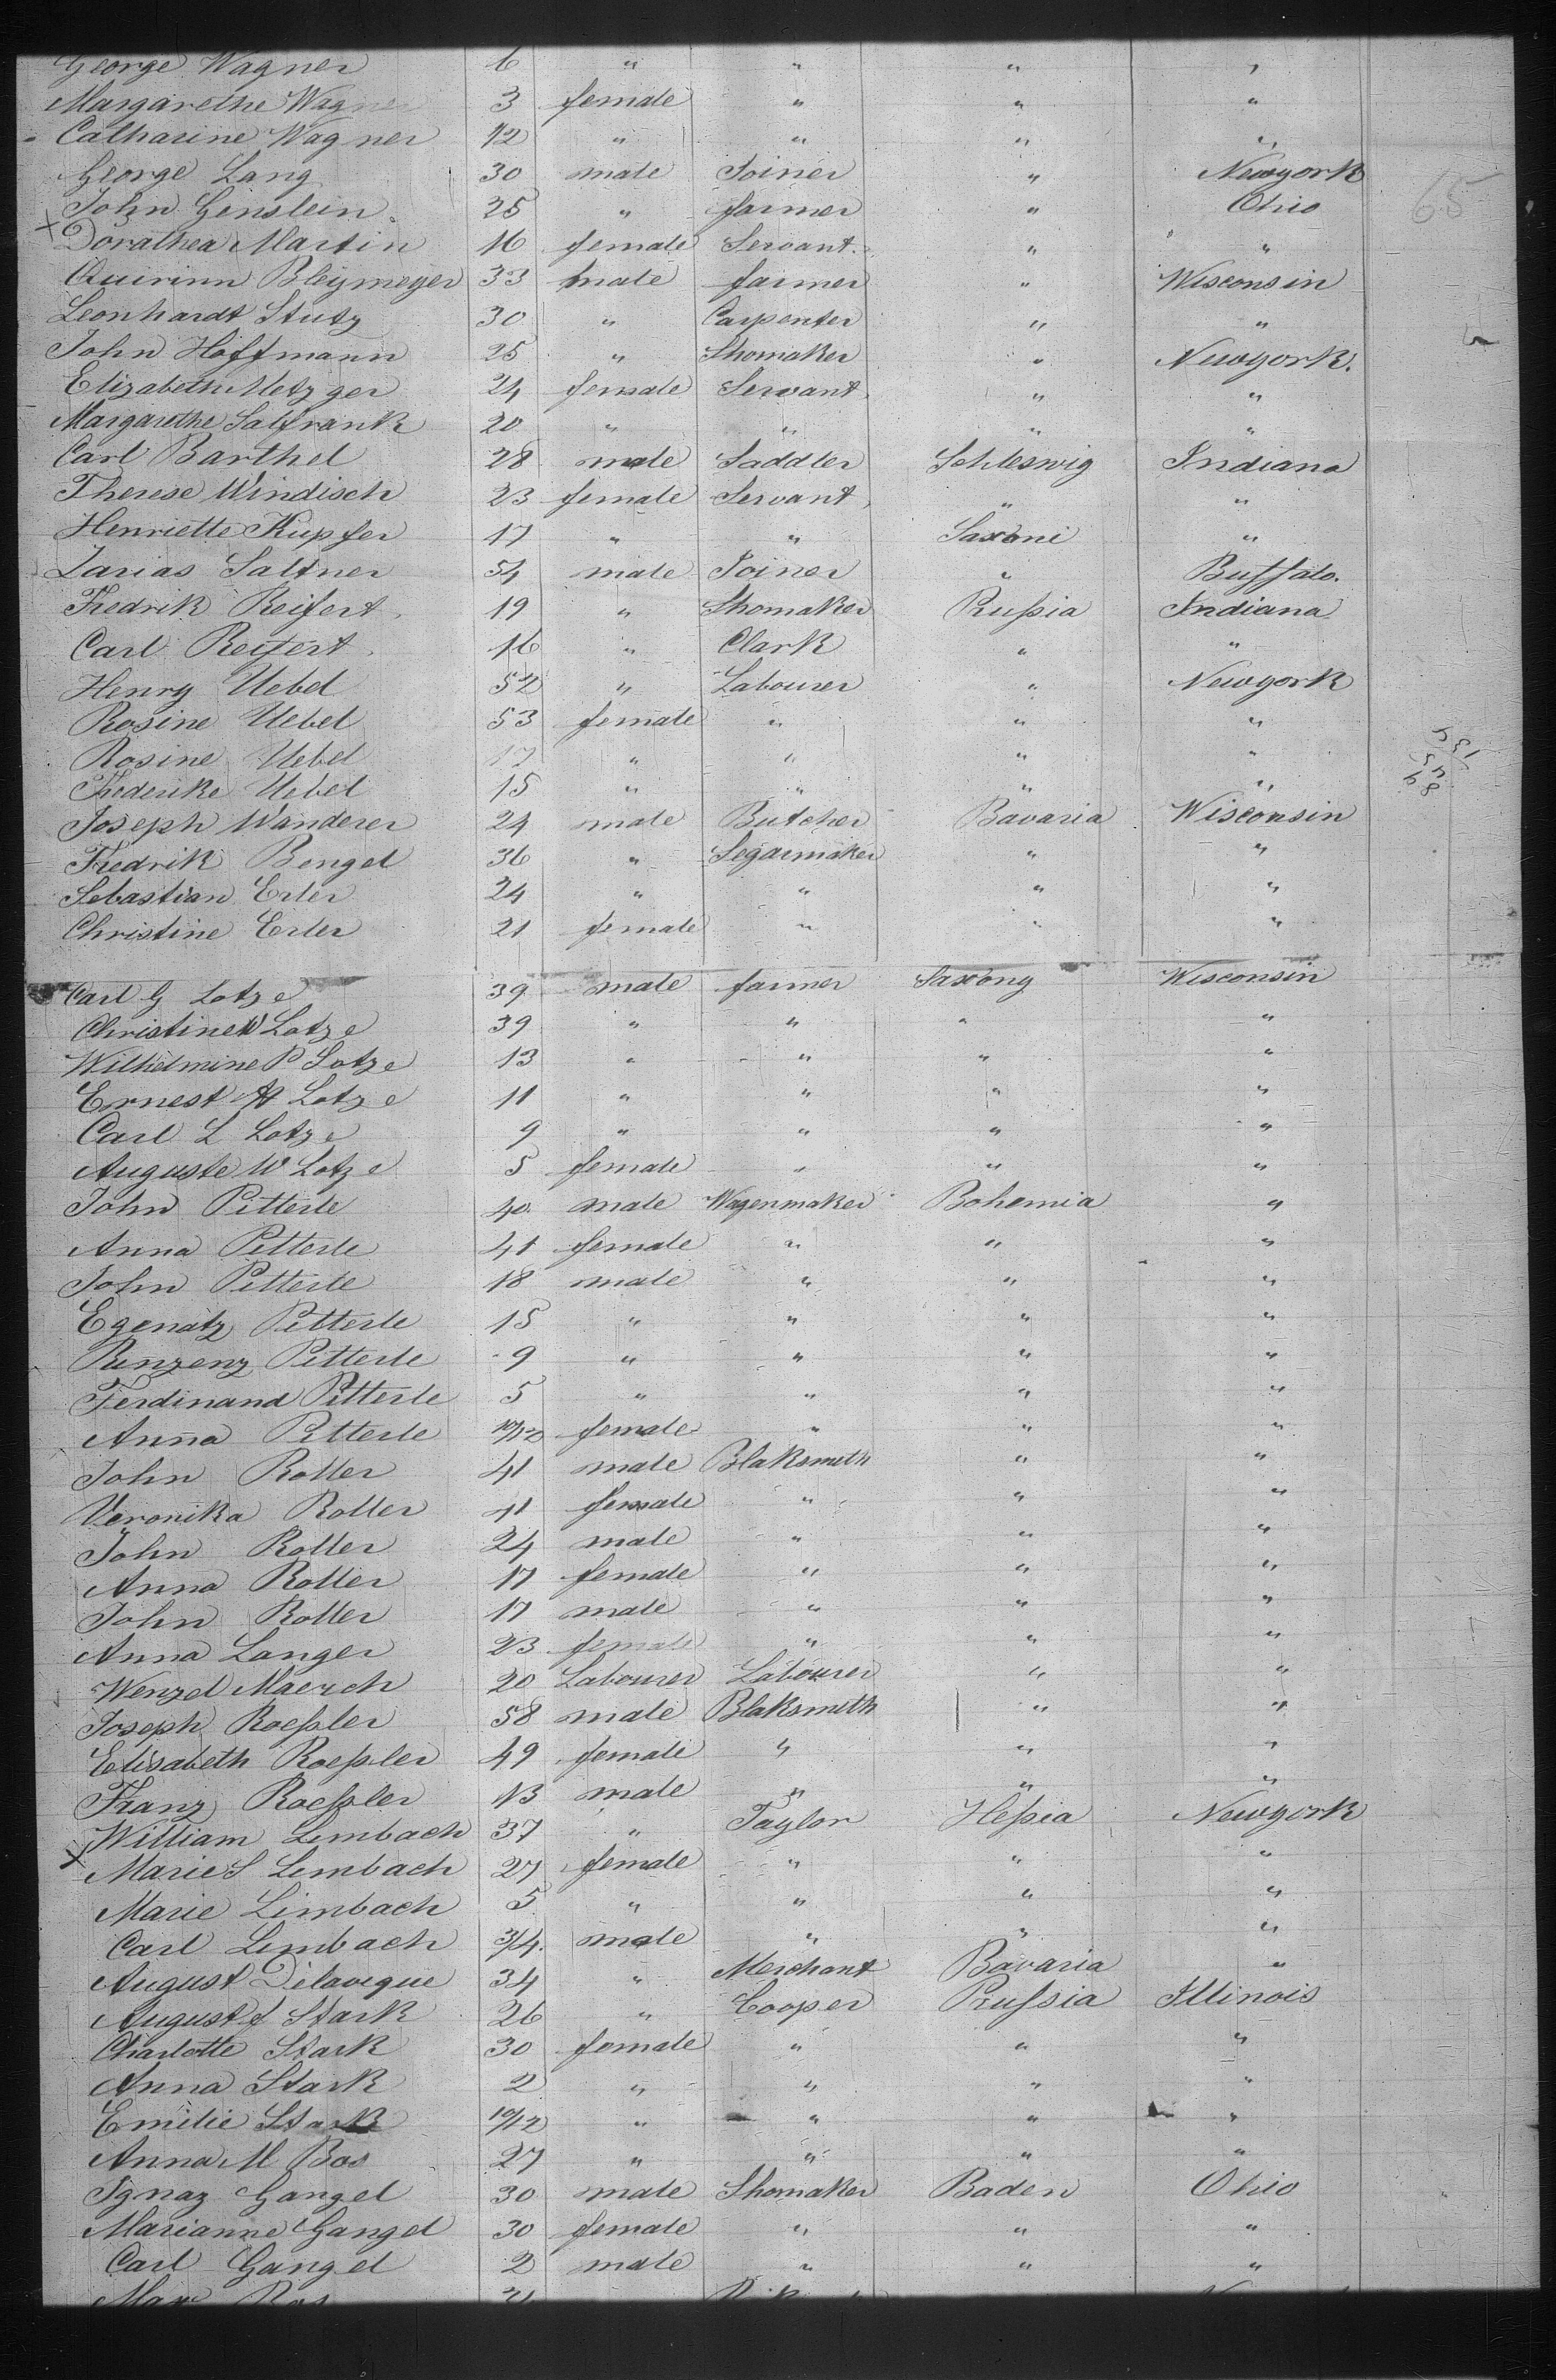 George Wagner 6 " " " "
Margarethe Wagner 3 female " " "
Catharine Wagner 1/2 " " " "
George Lang 30 male Joiner " Newyork
John Genslein 25 " farmer " Ohio
Dorathea Martin 16 female Servant " "
Quirinn Bleymeyer 33 male farmer " Wisconsin
Leonhardt Stutz 30 " Carpenter " "
John Hoffmann 25 " Shomaker " Newyork.
Elizabeth Metzger 24 female Servant " "
Margarethe Salfrank 20 " " " "
Carl Barthel 28 male Saddler Schleswig Indiana
Therese Windisch 23 female Servant " "
Henriette Kupfer 17 " " Saxoni "
Zarias Saltner 54 male Joiner " Buffalo.
Fredrik Reifert 19 " Shomaker Prußia Indiana
Carl Reifert 16 " Clark " "
Henry Uebel 52 " Labourer " Newyork
Rosine Uebel 53 female " " "
Rosine Uebel 17 " " " "
Frederike Uebel 15 " " " "
Joseph Wanderer 24 male Butcher Bavaria Wisconsin
Fredrik Bengel 36 " Segarmaker " "
Sebastian Erler 24 " " " "
Christine Erler 21 female " " "
Carl G Lotze 39 male farmer Saxony Wisconsin
Christine W Lotze 39 " " " "
Wilhelmine P Lotze 13 " " " "
Ernest A Lotze 11 " " " "
Carl L Lotze 9 " " " "
Auguste W Lotze 5 female " " "
John Pitterle 40 male Wagenmaker Bohemia "
Anna Pitterle 41 female " " "
John Pitterle 18 male " " "
Egenatz Pitterle 15 " " " "
Renzenz Pitterle 9 " " " "
Ferdinand Pitterle 5 " " " "
Anna Pitterle 10/12 female " " "
John Rotter 41 male Blaksmith " "
Veronika Rotter 41 female " " "
John Rotter 24 male " " "
Anna Rotter 17 female " " "
John Rotter 17 male " " "
Anna Langer 23 female " " "
Wenzel Maerch 20 Labourer Labourer " "
Joseph Roeßler 58 male Blaksmith " "
Elisabeth Roeßler 49 female " " "
Franz Roeßler 13 male " " "
William Limbach 37 " Taylor Heßia Newyork
Marie S Limbach 27 female " " "
Marie Limbach 5 " " " "
Carl Limbach 3/4 male " " "
August Delaveque 34 " Merchant Bavaria "
August f Stark 26 " Cooper Prußia Illinois
Charlotte Stark 30 female " " "
Anna Stark 2 " " " "
Emilie Stark 10/12 " " " "
Anna M Bos 27 " " " "
Ignaz Gangel 30 male Shomaker Baden Ohio
Marianne Gangel 30 female " " "
Carl Gangel 2 male " " "
65